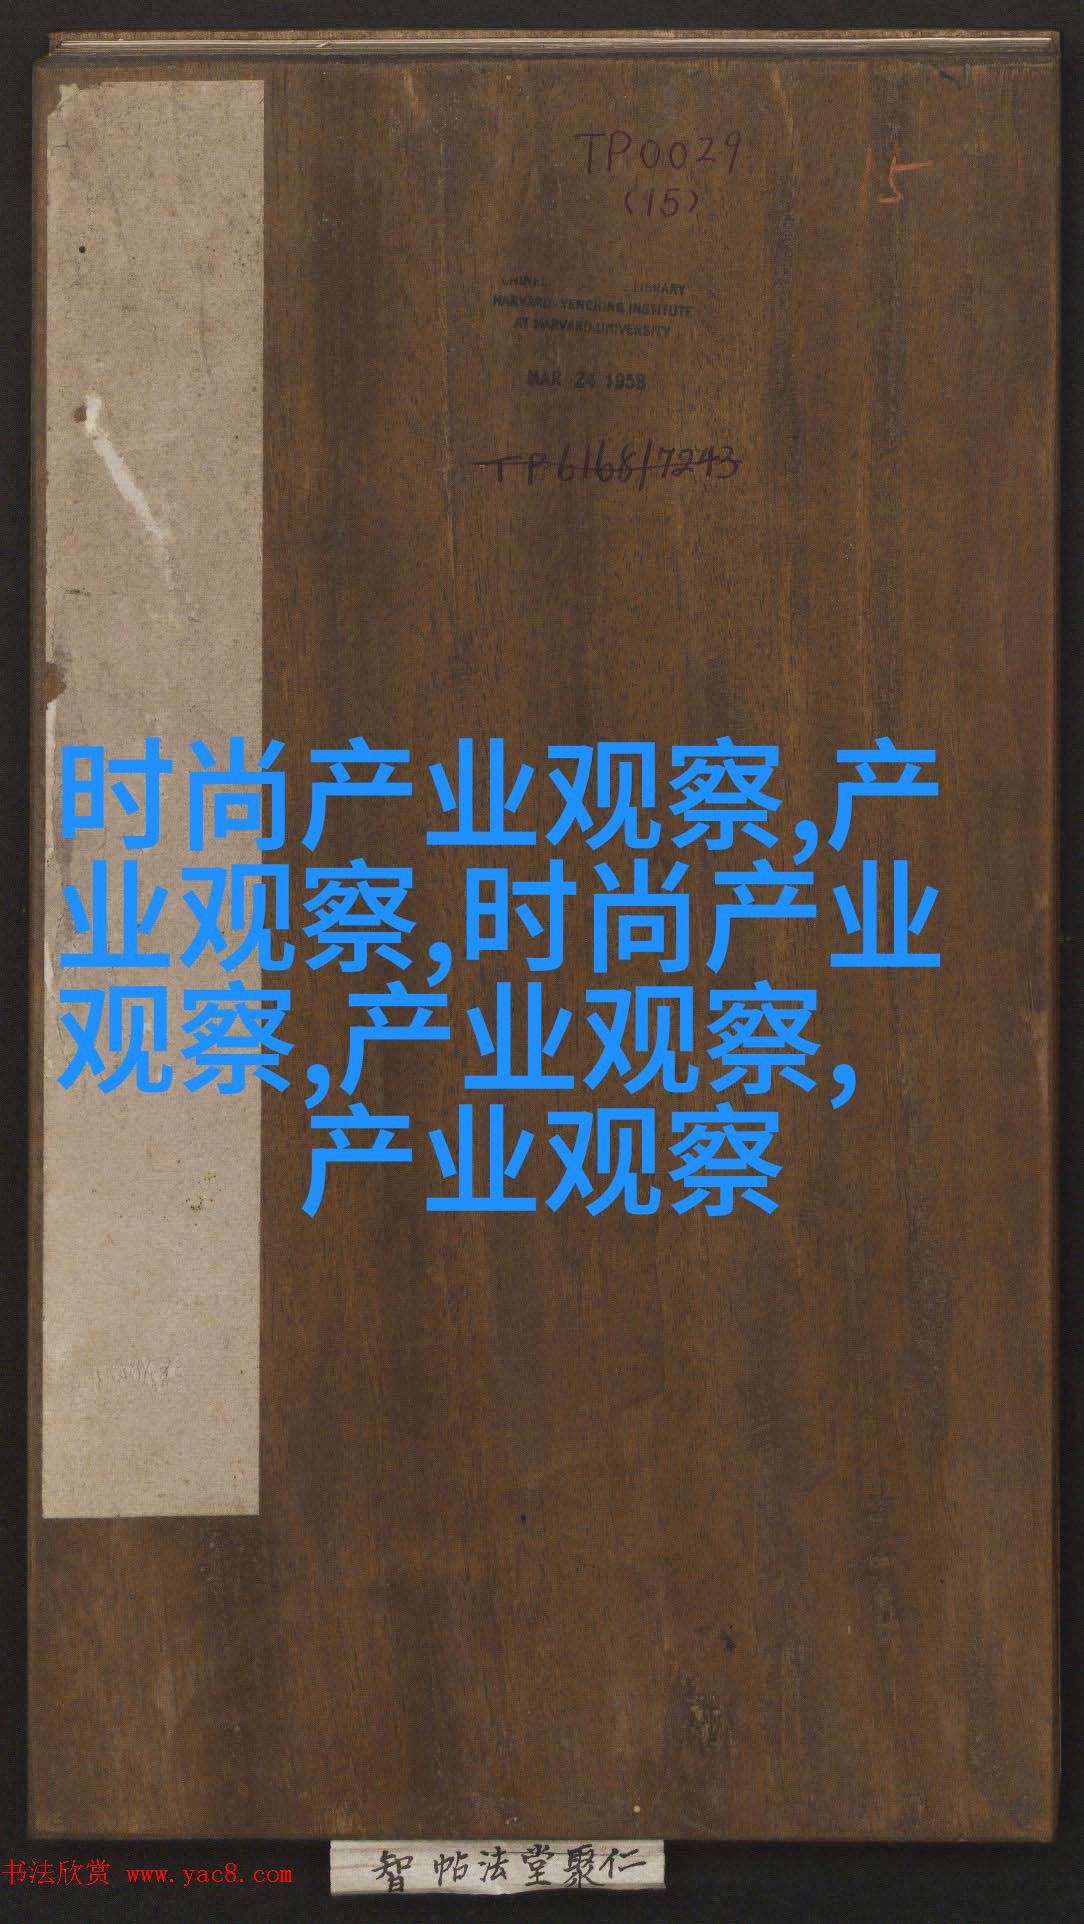 TP0029
(15)
15
LIBRARY
HARVARD-YENCHING INSTITUTE
AT HARVARD UNIVERSITY
MAR 24 1958
TP6168/7243
时尚产业观察,产
业观察,时尚产业
观察,产业观察,
产业观察
智帖法堂聚仁
书法欣赏 www.yac8.com